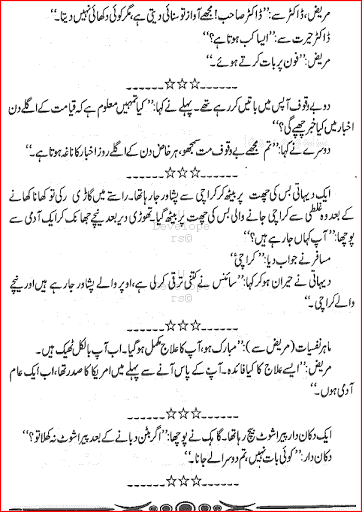 مریض، ڈاکٹر سے: ”ڈاکٹر صاحب! مجھے آواز تو سنائی دیتی ہے، مگر کوئی دکھائی نہیں دیتا۔“
ڈاکٹر حیرت سے: ”ایسا کب ہوتا ہے؟“
مریض: ”فون پر بات کرتے ہوئے۔“
------☆☆☆------
دو بے وقوف آپس میں باتیں کر رہے تھے۔ پہلے نے کہا: ”کیا تمہیں معلوم ہے کہ قیامت کے اگلے دن
اخبار میں کیا خبر چھپے گی؟“
دوسرے نے کہا: ”تم مجھے بے وقوف مت سمجھو، ہر خاص دن کے اگلے روز اخبار کا ناغہ ہوتا ہے۔“
------☆☆☆------
ایک دیہاتی بس کی چھت پر بیٹھ کر کراچی سے پشاور جا رہا تھا۔ راستے میں گاڑی رکی تو کھانا کھانے
کے بعد وہ غلطی سے کراچی جانے والی بس کی چھت پر بیٹھ گیا۔ تھوڑی دیر بعد نیچے جھانک کر ایک آدمی سے
پوچھا: ”آپ کہاں جا رہے ہیں؟“
مسافر نے جواب دیا: ”کراچی“
دیہاتی نے حیران ہو کر کہا: ”سائنس نے کتنی ترقی کر لی ہے، اوپر والے پشاور جا رہے ہیں اور نیچے
والے کراچی۔“
------☆☆☆------
ماہر نفسیات (مریض سے): ”مبارک ہو، آپ کا علاج مکمل ہو گیا۔ اب آپ بالکل ٹھیک ہیں۔
مریض: ایسے علاج کا کیا فائدہ۔ آپ کے پاس آنے سے پہلے میں امریکا کا صدر تھا، اب ایک عام
آدمی ہوں۔“
------☆☆☆------
ایک دکان دار پیرا شوٹ بیچ رہا تھا۔ گاہک نے پوچھا: ”اگر بٹن دبانے کے بعد پیرا شوٹ نہ کھلا تو؟“
دکان دار: ”کوئی بات نہیں، تم دوسرا لے جانا۔“
------☆☆☆------